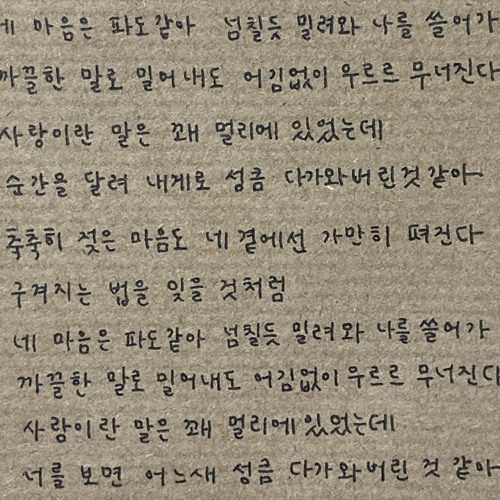 네 마음은 파도같아 넘칠듯 밀려와 나를 쓸어가
까끌한 말로 밀어내도 어김없이 우르르 무너진다
사랑이란 말은 꽤 멀리에 있었는데
순간을 달려 내게로 성큼 다가와버린것 같아
축축히 젖은 마음도 네 곁에선 가만히 펴진다
구겨지는 법을 잊을 것처럼
네 마음은 파도같아 넘칠듯 밀려와 나를 쓸어가
까끌한 말로 밀어내도 어김없이 우르르 무너진다
사랑이란 말은 꽤 멀리에 있었는데
너를 보면 어느새 성큼 다가와버린 것 같아